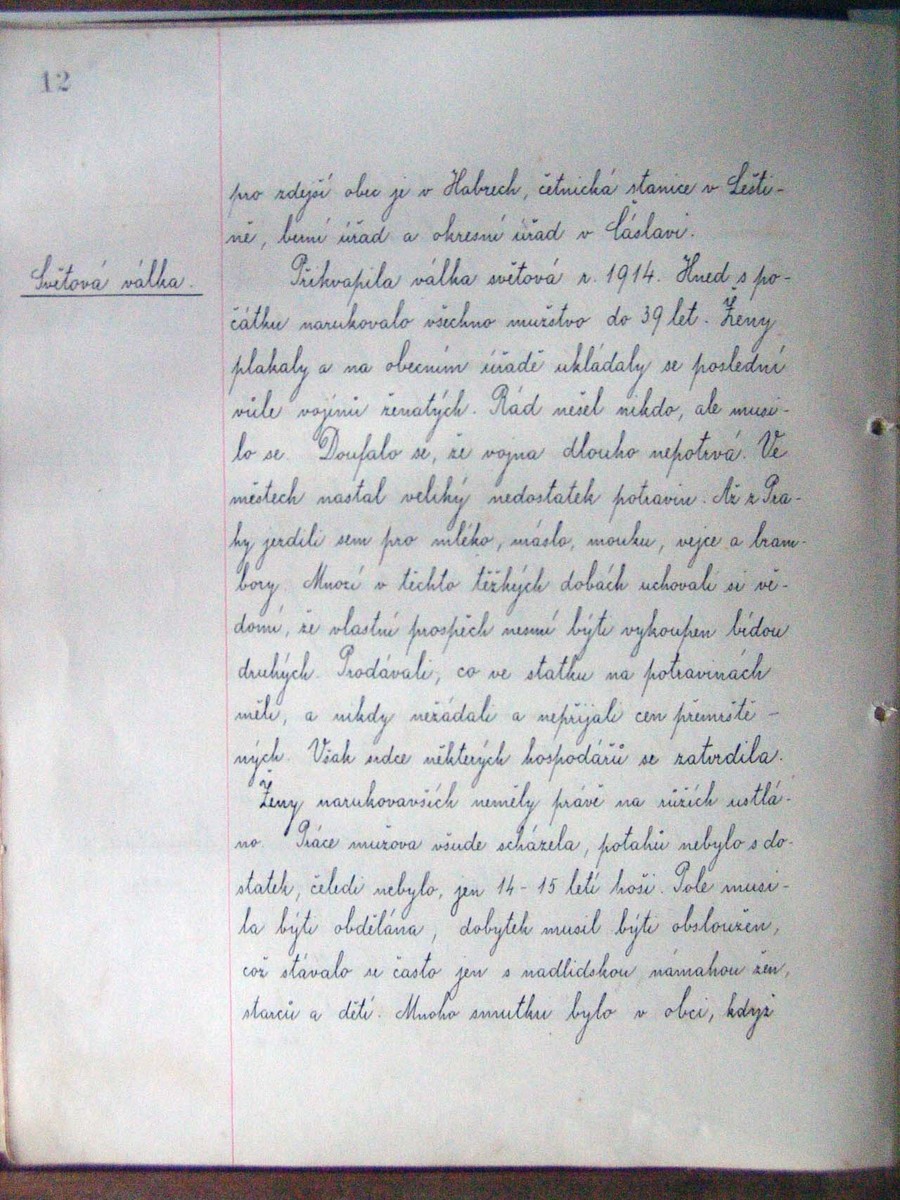 12
pro zdejší obec je v Habrech, četnická stanice v Lešti-
ně, berní úřad a okresní úřad v Čáslavi.
Světová válka.
Překvapila válka světová r. 1914. Hned s po-
čátku narukovalo všechno mužstvo do 39 let. Ženy
plakaly a na obecním úřadě ukládaly se poslední
vůle vojínů ženatých. Rád nešel nikdo, ale musi-
lo se. Doufalo se, že vojna dlouho nepotrvá. Ve
městech nastal veliký nedostatek potravin. Až z Pra-
hy jezdili sem pro mléko, máslo, mouku, vejce a bram-
bory. Mnozí v těchto těžkých dobách uchovali si vě-
domí, že vlastní prospěch nesmí býti vykoupen bídou
druhých. Prodávali, co ve statku na potravinách
měli, a nikdy nežádali a nepřijali cen přemrště-
ných. Však srdce některých hospodářů se zatvrdila.
Ženy narukovavších neměly právě na růžích ustlá-
no. Práce mužova všude scházela, potahů nebylo s do-
statek, čeledi nebylo, jen 14-15 letí hoši. Pole musi-
la býti obdělána, dobytek musil býti obsloužen,
což stávalo se často jen s nadlidskou námahou žen,
starců a dětí. Mnoho smutku bylo v obci, když